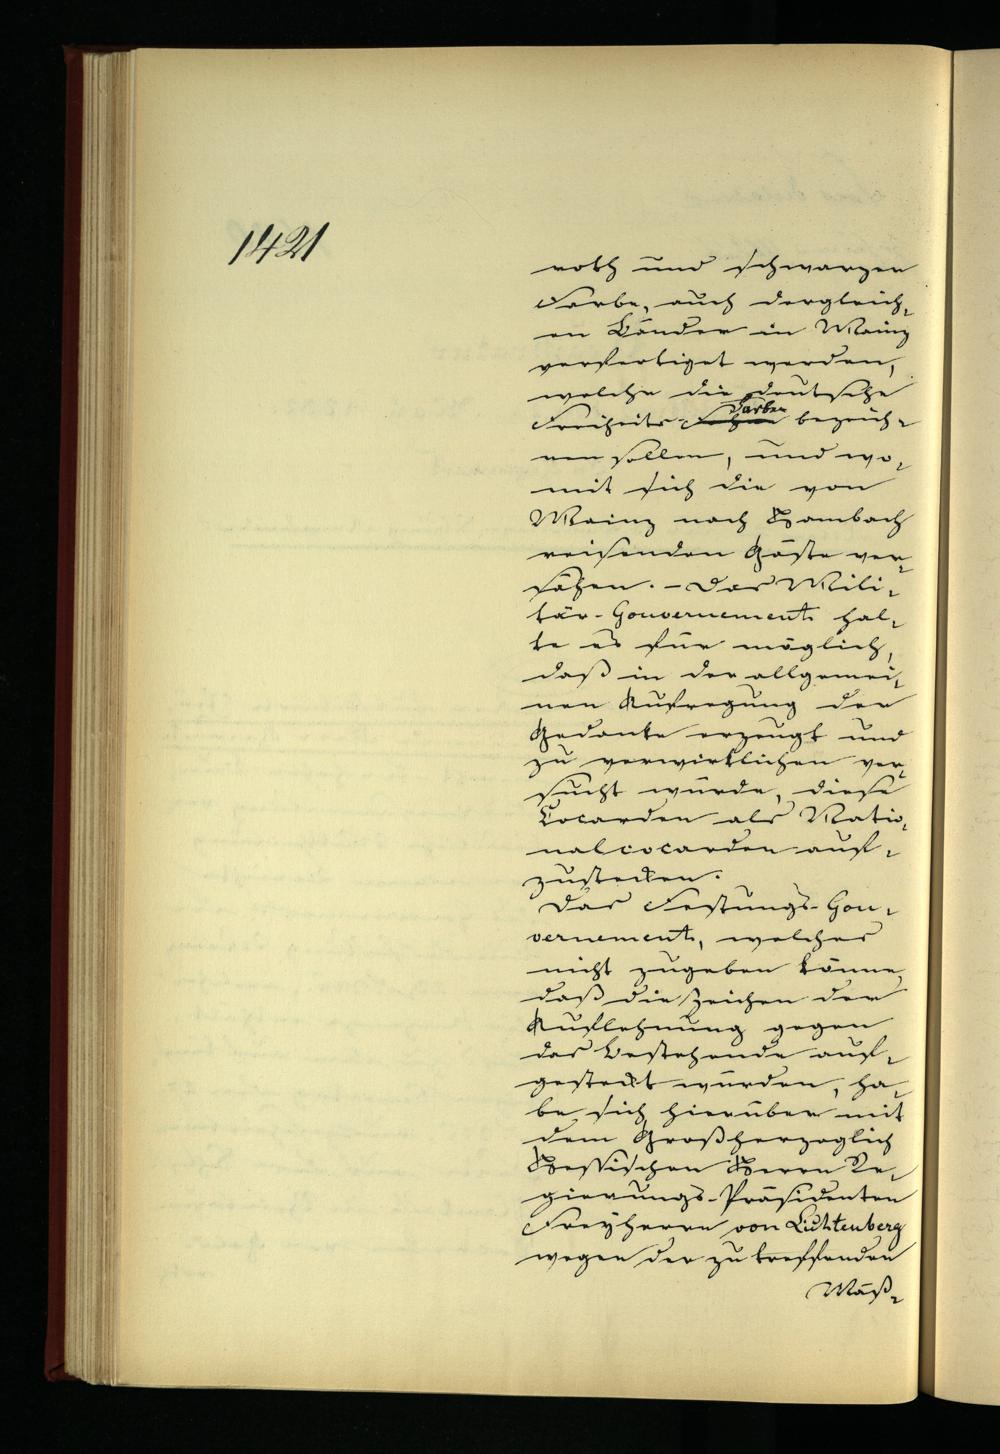 1421
roth und schwarzer
Farbe, auch dergleich-
en Bänder in Mainz
verfertiget werden,
welche die deutsche
Farben
Freiheits- bezeich-
nen sollen, und wo-
mit sich die von
Mainz nach Hambach
reisenden Gäste ver-
sähen. - Das Mili-
tär-Gouvernement hal-
te es für möglich,
daß in der allgemei-
nen Aufregung der
Gedanke erzeugt und
zu verwirklichen ver-
sucht würde, diese
Cocarden als Natio-
nalcocarden auf-
zustecken.
Das Festungs-Gou-
vernement, welches
nicht zugeben könne,
daß die Zeichen der
Auflehnung gegen
das Bestehende auf-
gesteckt würden, ha-
be sich hierüber mit
dem Großherzoglich
Hessischen Herrn Re-
gierungs-Präsidenten
Freyherrn von Lichtenberg
wegen der zu treffenden
Maß-